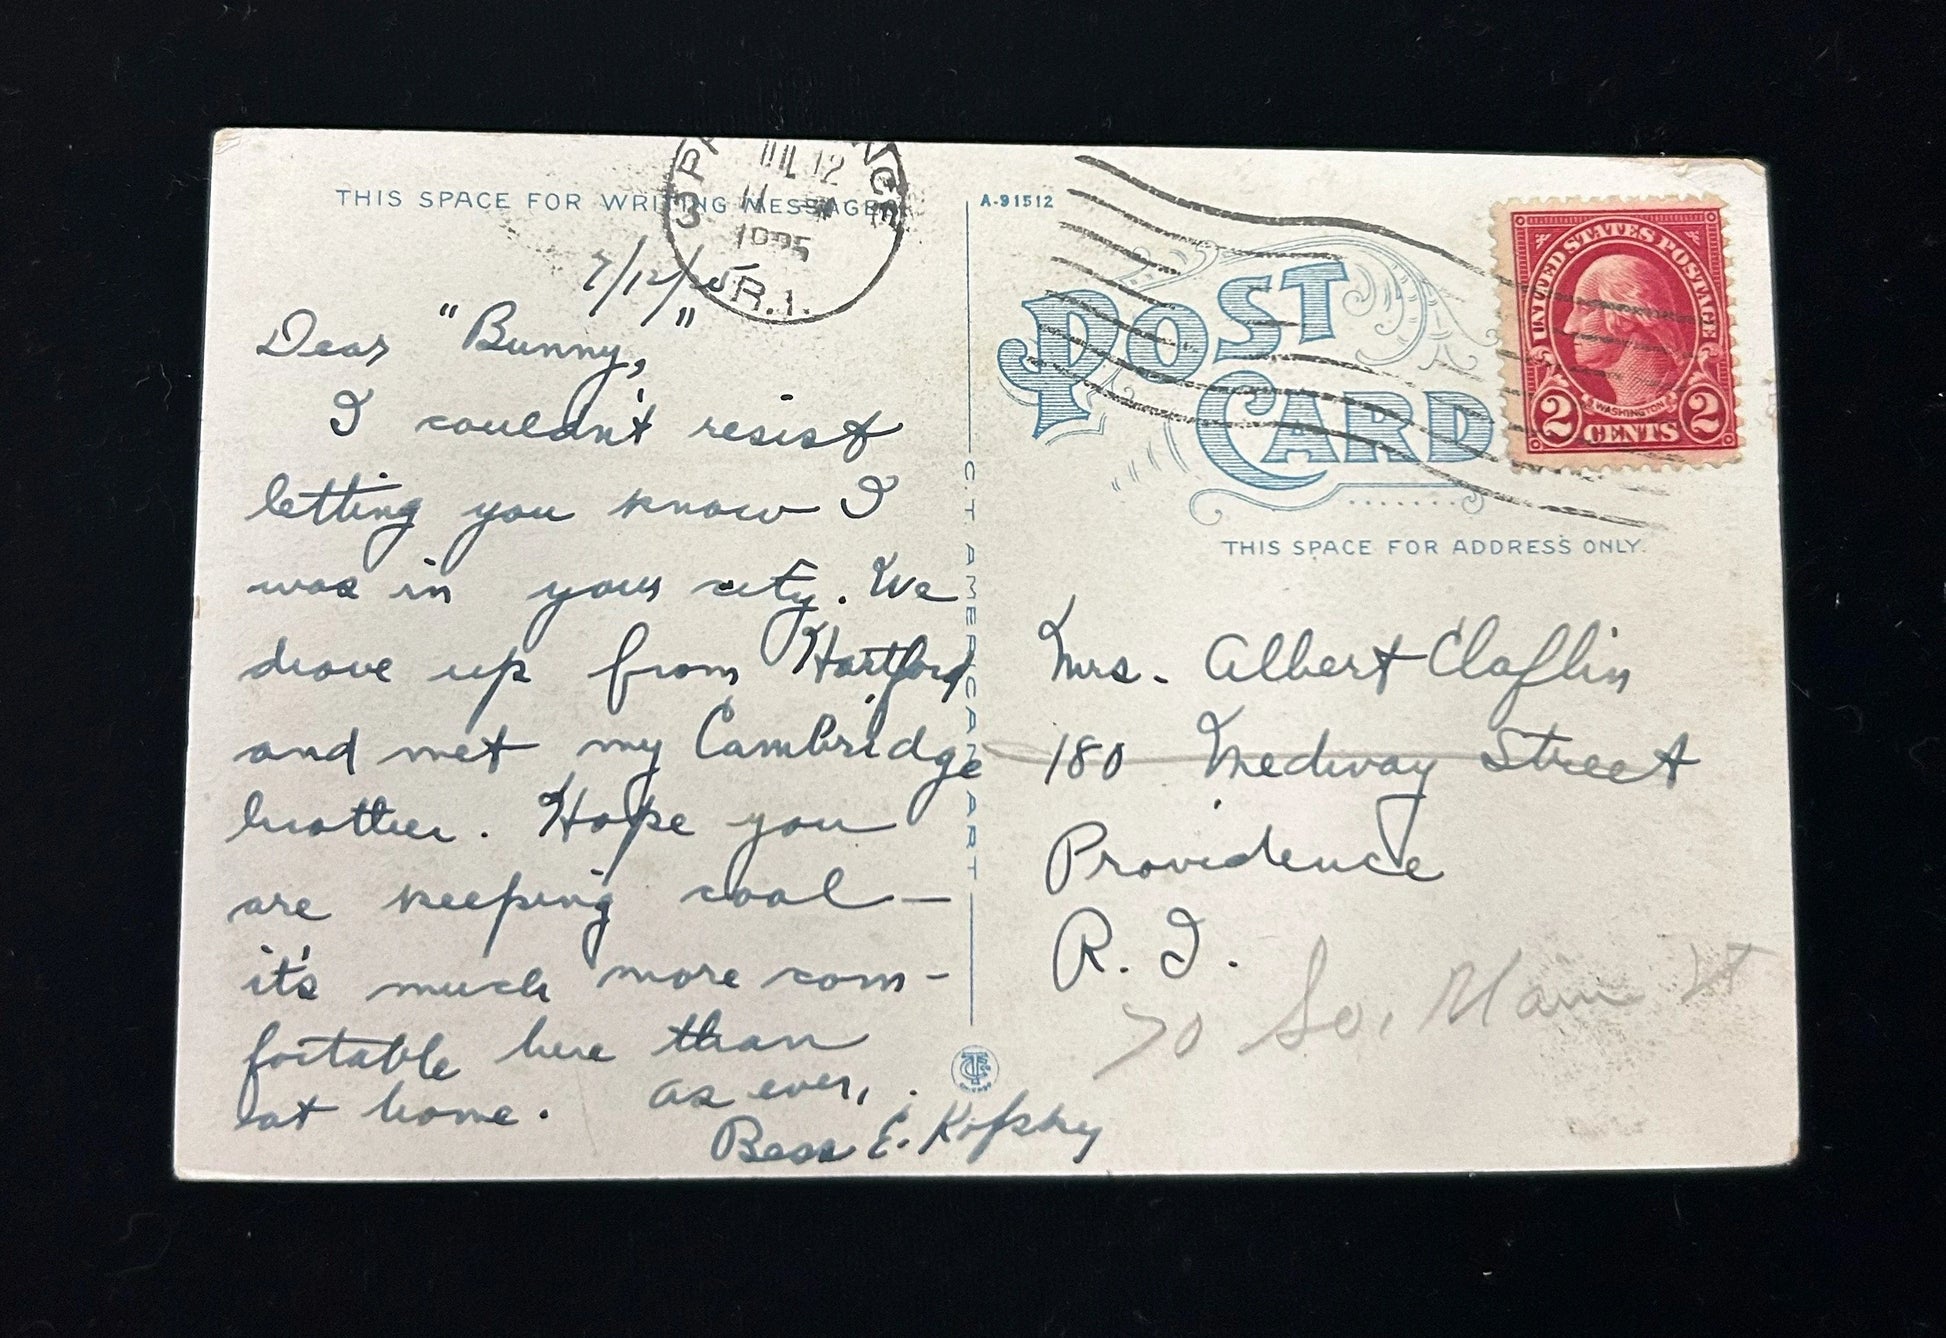 THIS SPACE FOR WRITING MESSAGES
JUL 12
11
1925
R.I.
3
7/12/
Dear "Bunny,"
I couldn't resist
letting you know I
was in your city. We
drove up from Hartford
and met my Cambridge
brother. Hope you
are keeping cool —
it's much more com-
fortable here than
at home. As ever,
Bess E. Kofsky
C. T. AMERICAN ART
A-91512
POST
CARD
UNITED STATES POSTAGE
WASHINGTON
2 CENTS 2
THIS SPACE FOR ADDRESS ONLY.
Mrs. Albert Claflin
180 Medway Street
Providence
R. I.
70 So. Main St